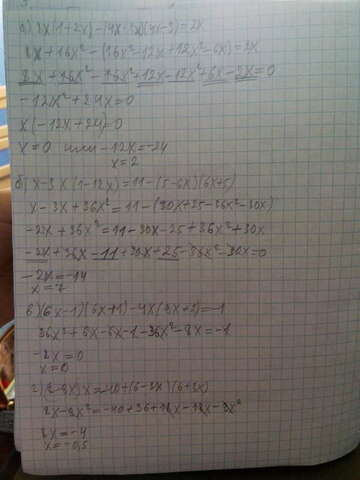 а) 8x(1+2x)-(4x-3x)(4x-3)=2x
8x+16x²-(16x²-12x+12x²-6x)=2x
8x+16x²-16x²+12x-12x²+6x-2x=0
-12x²+24x=0
x(-12x+24)=0
x=0 или -12x=-24
x=2
б) x-3x(1-12x)=11-(5-6x)(6x+5)
x-3x+36x²=11-(30x+25-36x²-30x)
-2x+36x²=11-30x-25+36x²+30x
-2x+36x-11+30x+25-36x²-30x=0
-2x=-14
x=7
в) (6x-1)(6x+1)-4x(9x+2)=-1
36x²+6x-6x-1-36x²-8x=-1
-8x=0
x=0
г) (2-9x)x=-40+(6-3x)(6+3x)
2x-9x²=-40+36+18x-18x-9x²
2x=-4
x=-0,5